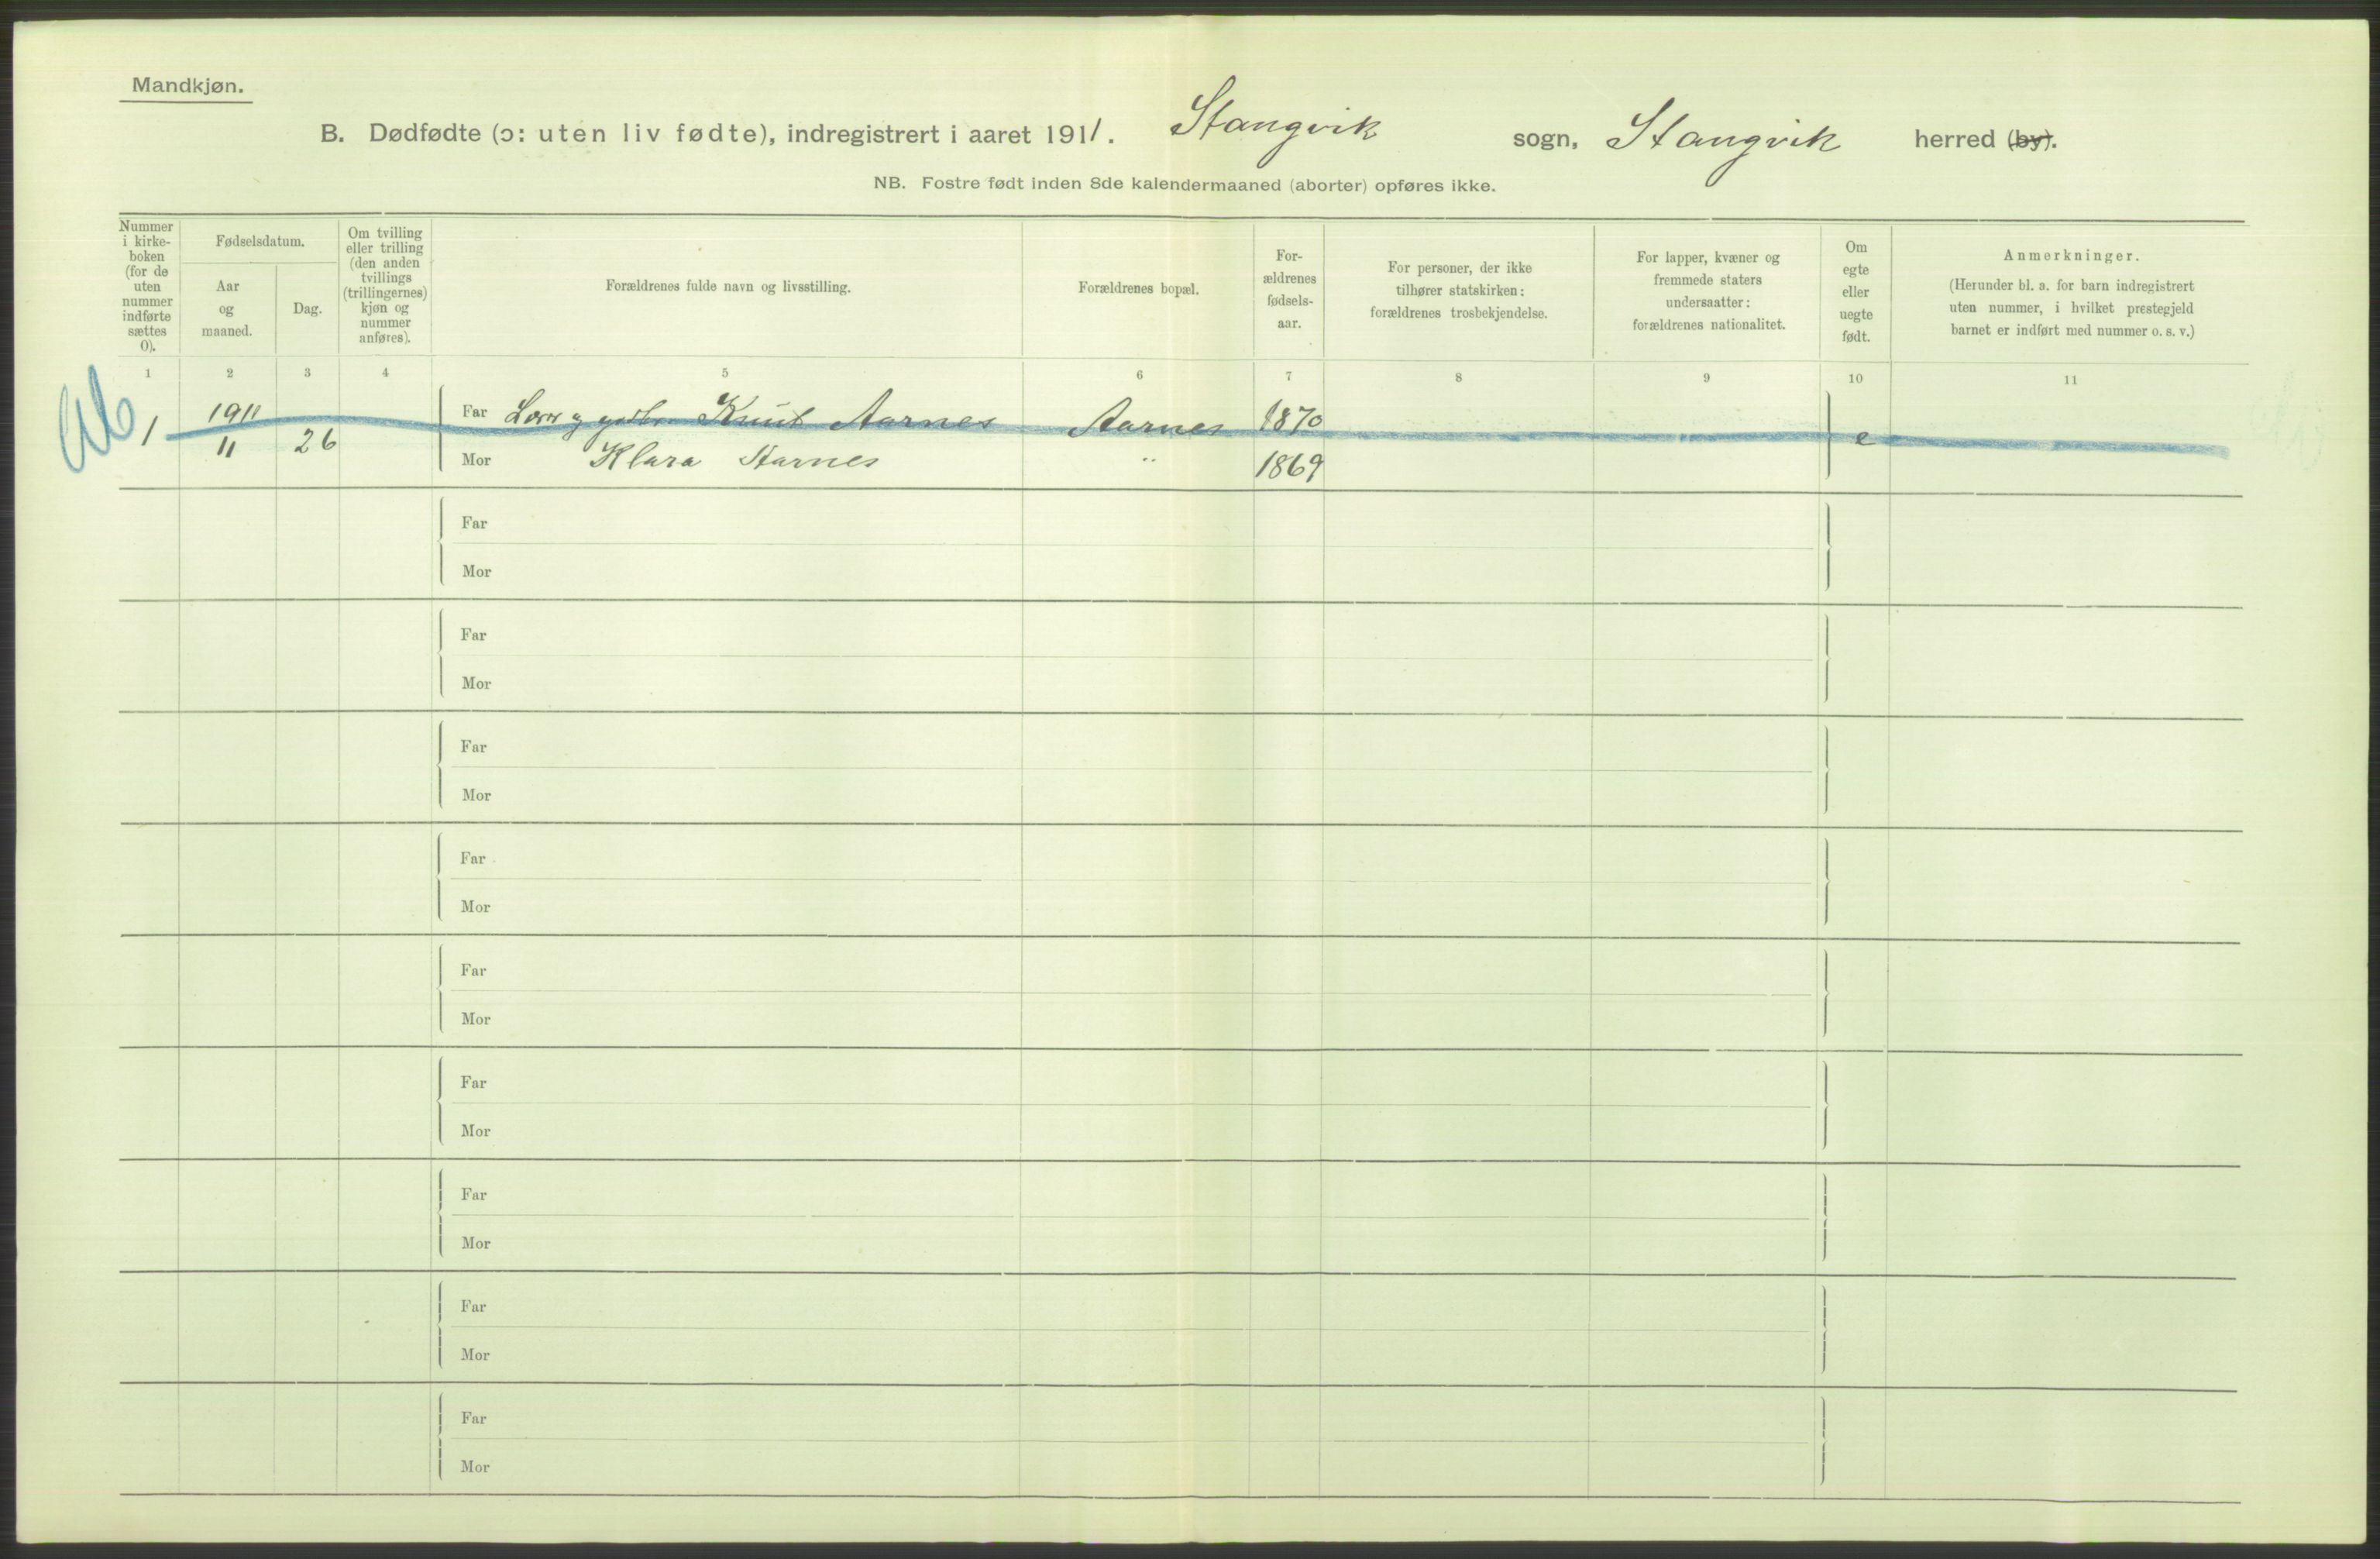 Mandkjøn.
B. Dødfødte (ɔ: uten liv fødte), indregistrert i aaret 1911. Stangvik sogn, Stangvik herred (by).
NB. Fostre født inden 8de kalendermaaned (aborter) opføres ikke.
Nummer
i kirke-
boken
(for de
uten
nummer
indførte
sættes
0).
Fødselsdatum.
Aar
og
maaned.
Dag.
Om tvilling
eller trilling
(den anden
tvillings
(trillingernes)
kjøn og
nummer
anføres).
Forældrenes fulde navn og livsstilling.
Forældrenes bopæl.
For-
ældrenes
fødsels-
aar.
For personer, der ikke
tilhører statskirken:
forældrenes trosbekjendelse.
For lapper, kvæner og
fremmede staters
undersaatter:
forældrenes nationalitet.
Om
egte
eller
uegte
født.
Anmerkninger.
(Herunder bl. a. for barn indregistrert
uten nummer, i hvilket prestegjeld
barnet er indført med nummer o. s. v.)
1 2 3 4 5 6 7 8 9 10 11
1 1911 Far Knut Aarnes Aarnes 1870 e
11 26 Mor Klara Aarnes " 1869
Far
Mor
Far
Mor
Far
Mor
Far
Mor
Far
Mor
Far
Mor
Far
Mor
Far
Mor
Far
Mor